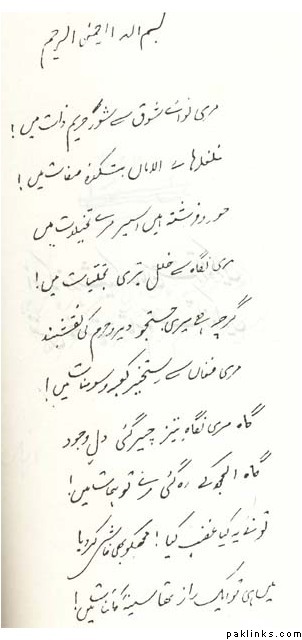 بسم اللہ الرحمٰن الرحیم
مری نوائے شوق سے شور حریم ذات میں!
غلغلہ ہائے الاماں بتکدۂ صفات میں!
حور و فرشتہ ہیں اسیر مرے تخیلات میں
مری نگاہ سے خلل تیری تجلیات میں!
گرچہ ہے میری جستجو دیر و حرم کی نقشبند
مری فغاں سے رستخیز کعبہ و سومنات میں!
گاہ مری نگاہ تیز چیر گئی دلِ وجود
گاہ الجھ کے رہ گئی مرے توہمات میں!
تو نے یہ کیا غضب کیا! مجھکو بھی فاش کر دیا
میں ہی تو ایک راز تھا سینۂ کائنات میں!
paklinks.com